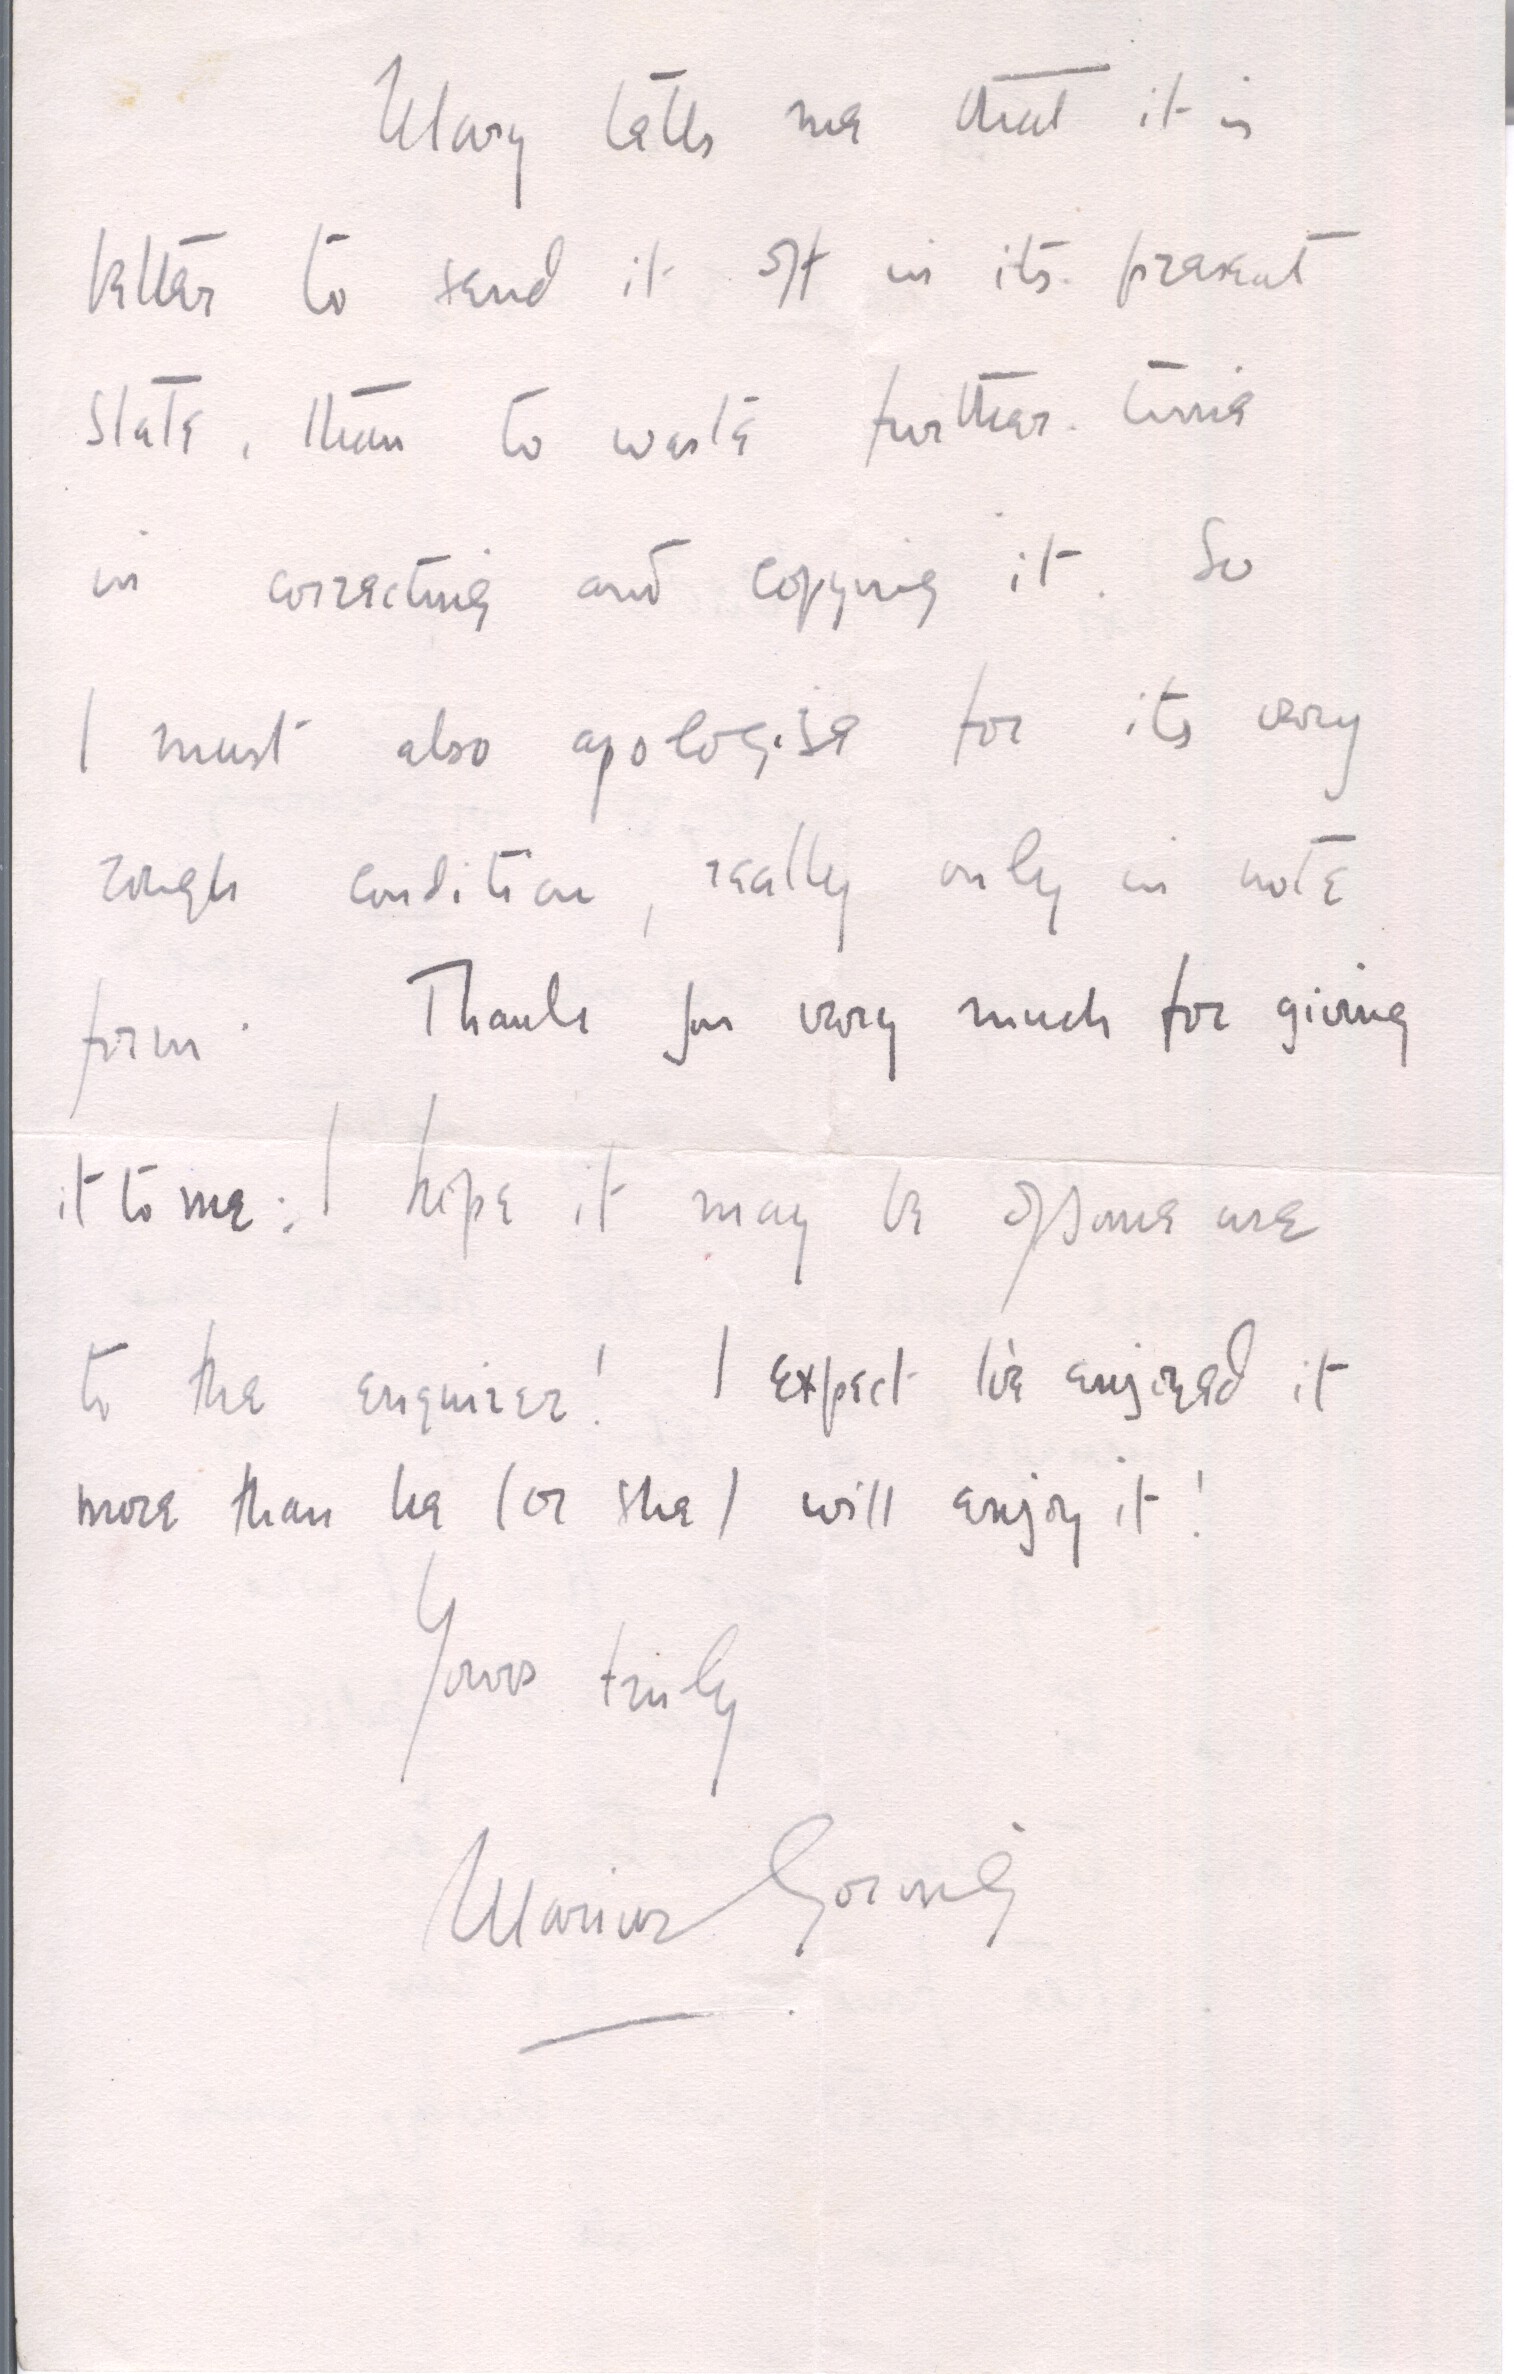 Mary tells me that it is
better to send it off in its present
state, than to waste further time
in correcting and copying it. So
I must also apologise for its very
rough condition, really only in note
form. Thank you very much for giving
it to me: I hope it may be of some use
to the enquirer! I expect I've enjoyed it
more than he (or she) will enjoy it!
Yours truly
Marius Goring